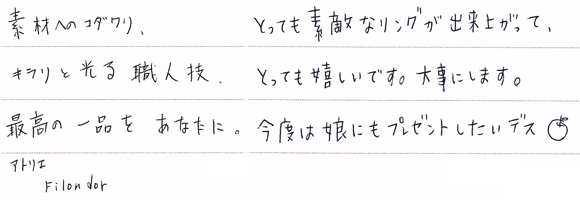 素材へのコダワリ、
キラリと光る職人技、
最高の一品をあなたに。
アトリエ
Filondor
とっても素敵なリングが出来上がって、
とっても嬉しいです。大事にします。
今度は娘にもプレゼントしたいデス